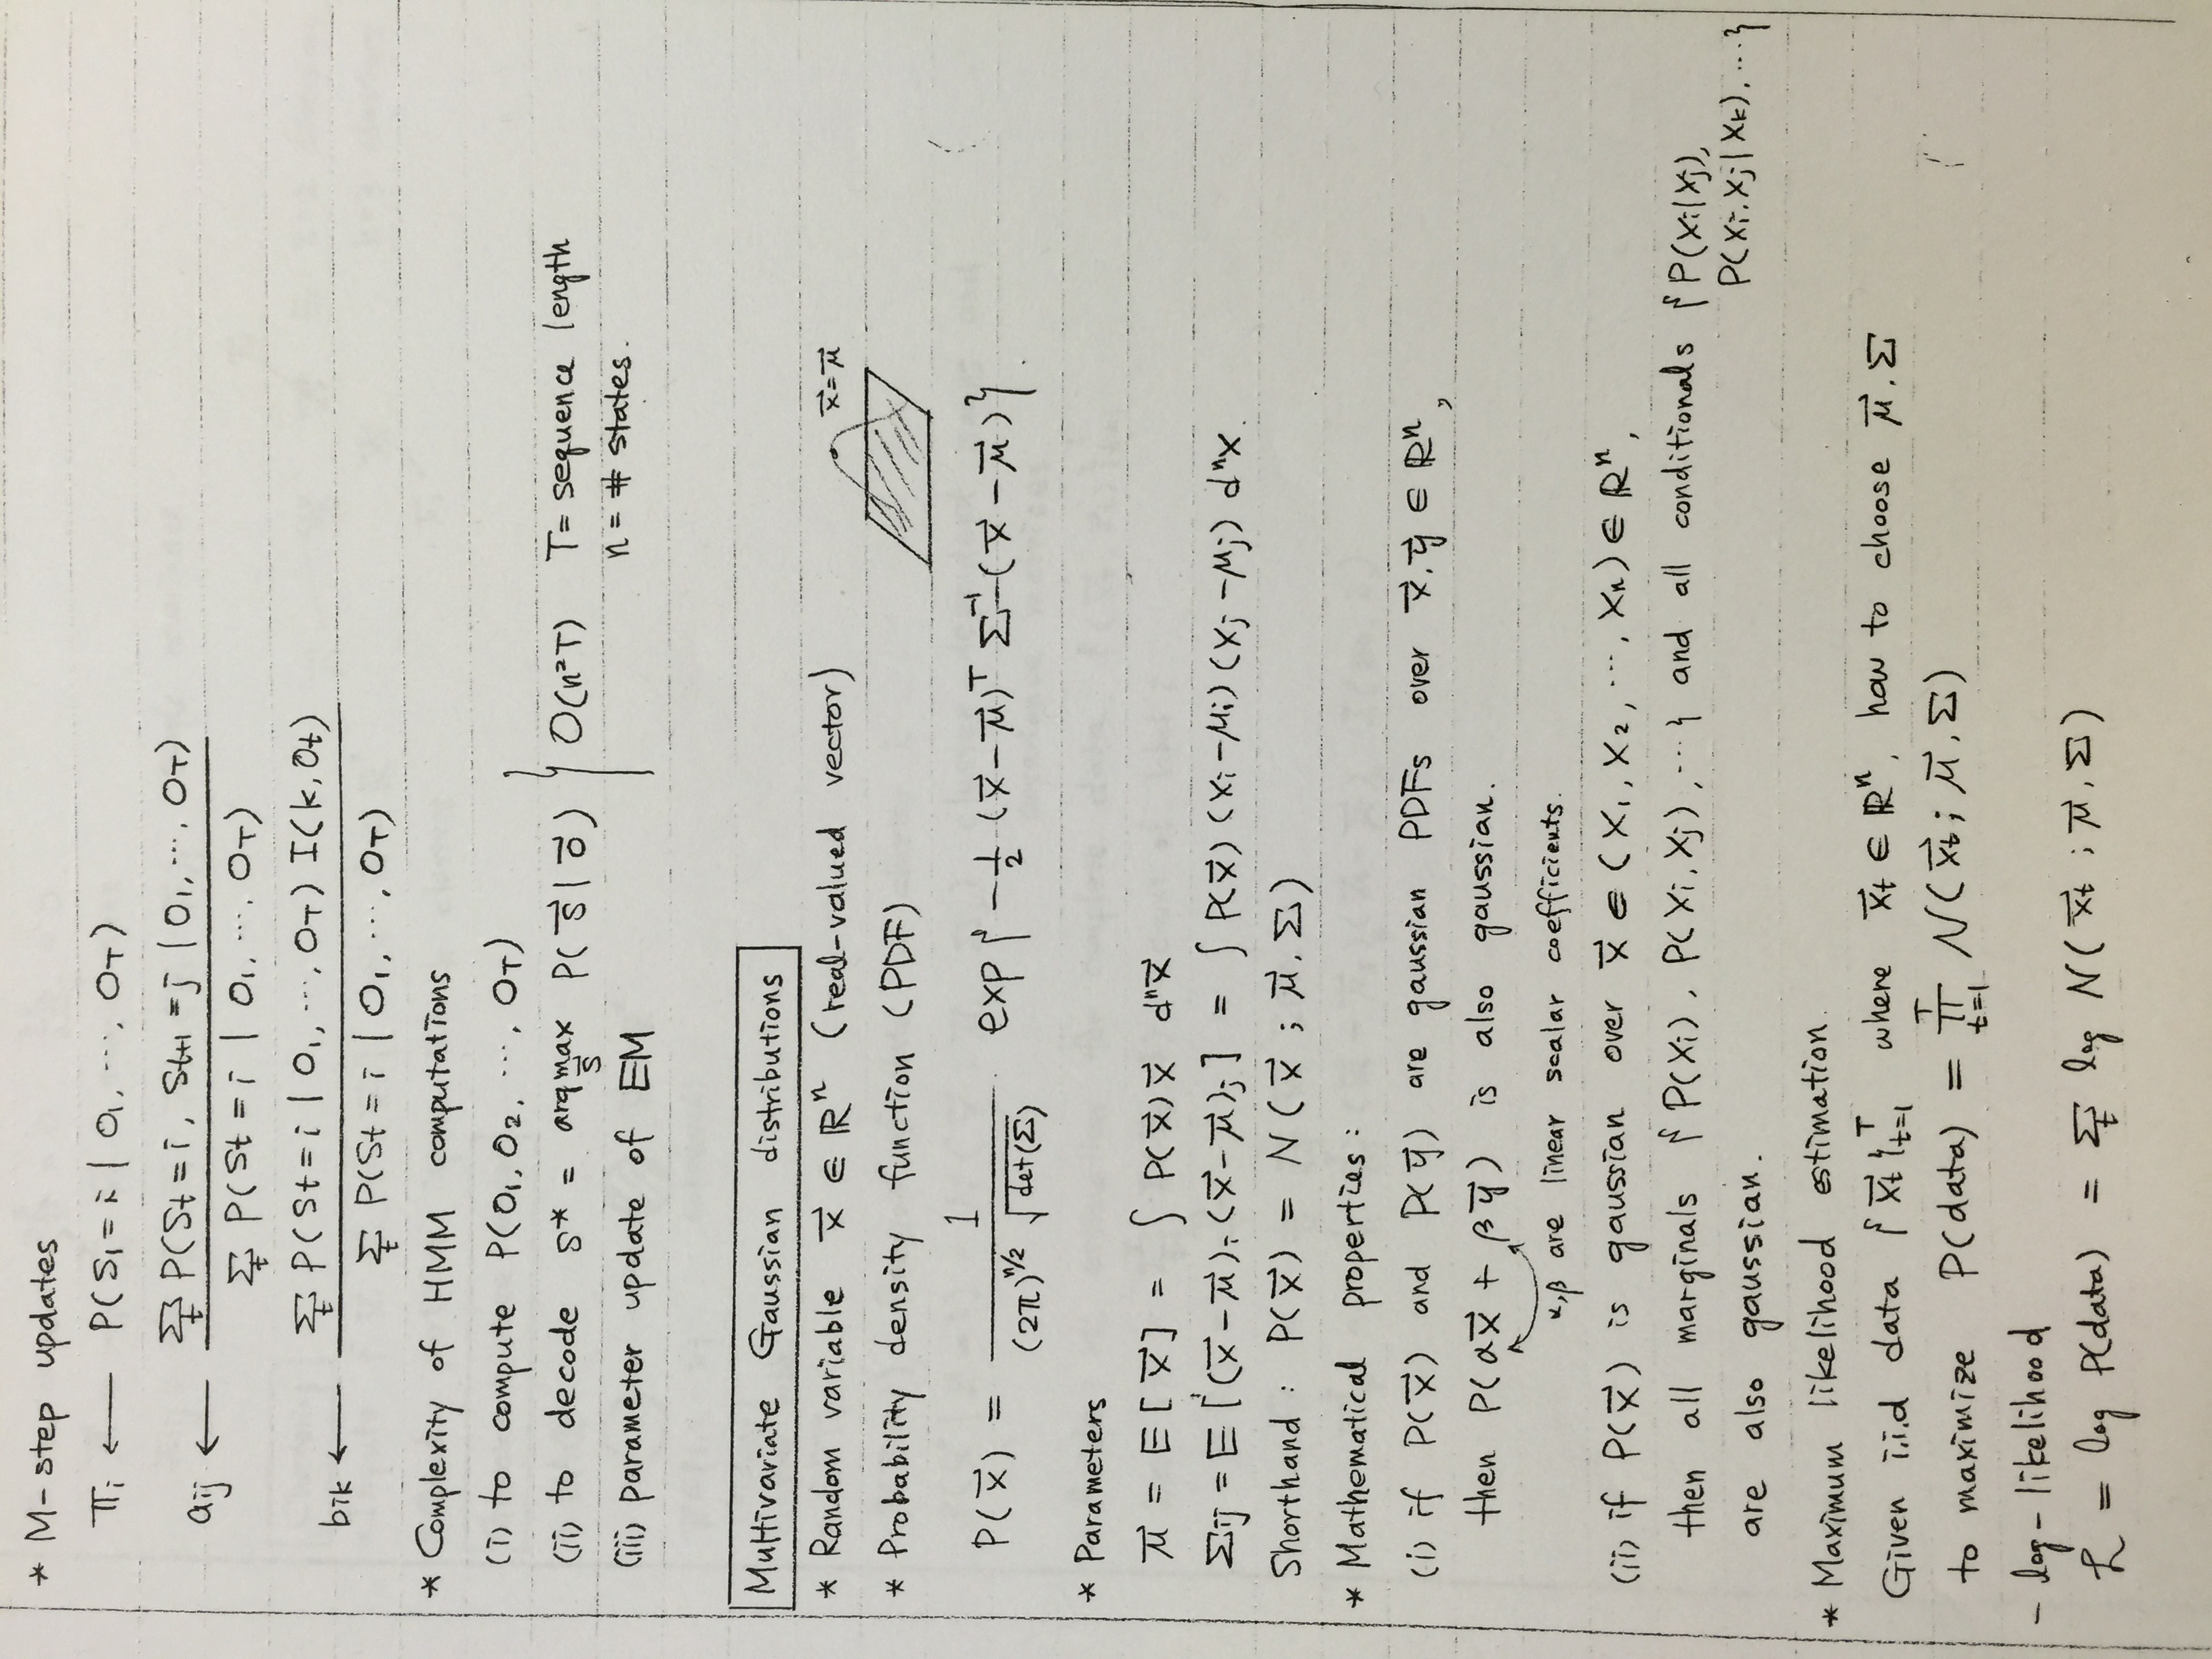 * M-step updates
πi ← P(S1=i | O1, ..., OT)
aij ← Σt P(St=i, St+1=j | O1, ..., OT) / Σt P(St=i | O1, ..., OT)
bik ← Σt P(St=i | O1, ..., OT) I(k, Ot) / Σt P(St=i | O1, ..., OT)
* Complexity of HMM computations
(i) to compute P(O1, O2, ..., OT)
(ii) to decode s* = argmax s⃗ P(s⃗ | o⃗) } O(n²T) T = sequence length
n = # states.
(iii) parameter update of EM
Multivariate Gaussian distributions
* Random variable x⃗ ∈ ℝⁿ (real-valued vector)
x⃗=μ⃗
* Probability density function (PDF)
P(x⃗) = 1 / ((2π)^n/2 √det(Σ)) exp{ -1/2 (x⃗-μ⃗)^T Σ^-1 (x⃗-μ⃗) }.
* Parameters
μ⃗ = E[x⃗] = ∫ P(x⃗) x⃗ dⁿx⃗
Σij = E[(x⃗-μ⃗)i (x⃗-μ⃗)j] = ∫ P(x⃗) (xi-μi) (xj-μj) dⁿx.
Shorthand : P(x⃗) = N(x⃗ ; μ⃗, Σ)
* Mathematical properties :
(i) if P(x⃗) and P(y⃗) are gaussian PDFs over x⃗, y⃗ ∈ ℝⁿ,
then P(αx⃗ + βy⃗) is also gaussian.
α,β are linear scalar coefficients.
(ii) if P(x⃗) is gaussian over x⃗ ∈ (X1, X2, ..., Xn) ∈ ℝⁿ,
then all marginals { P(Xi), P(Xi, Xj), ... } and all conditionals { P(Xi|Xj),
P(Xi, Xj | Xk), ... }
are also gaussian.
* Maximum likelihood estimation.
Given i.i.d data { x⃗t }^T t=1 where x⃗t ∈ ℝⁿ, how to choose μ⃗, Σ
to maximize P(data) = ∏^T t=1 N(x⃗t ; μ⃗, Σ)
- log-likelihood
ℒ = log P(data) = Σt log N(x⃗t ; μ⃗, Σ)